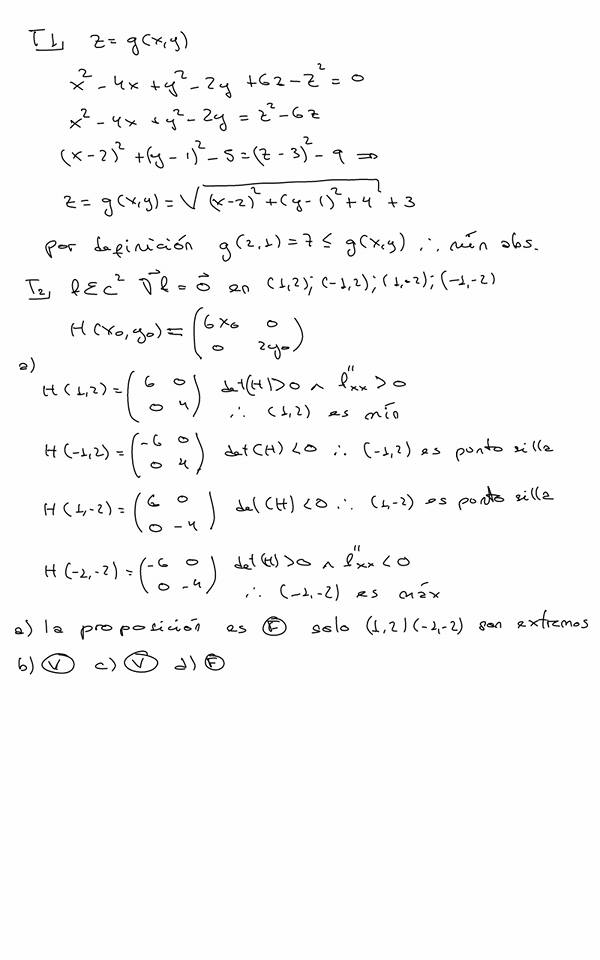 T1) z = g(x,y)
x² - 4x + y² - 2y + 6z - z² = 0
x² - 4x + y² - 2y = z² - 6z
(x-2)² + (y-1)² - 5 = (z-3)² - 9 ⇒
z = g(x,y) = √((x-2)² + (y-1)² + 4) + 3
por definición g(2,1) = 7 ≤ g(x,y) ∴ mín abs.
T2) f ∈ C² ∇f = 0⃗ en (1,2); (-1,2); (1,-2); (-1,-2)
H(x₀,y₀) = (6x₀ 0
0 2y₀)
a)
H(1,2) = (6 0 det(H)>0 ∧ f''xx > 0
0 4) ∴ (1,2) es mín
H(-1,2) = (-6 0
0 4) det(H) < 0 ∴ (-1,2) es punto silla
H(1,-2) = (6 0
0 -4) det(H) < 0 ∴ (1,-2) es punto silla
H(-1,-2) = (-6 0 det(H)>0 ∧ f''xx < 0
0 -4) ∴ (-1,-2) es máx
a) la proposición es F solo (1,2) (-1,-2) son extremos
b) V c) V d) F